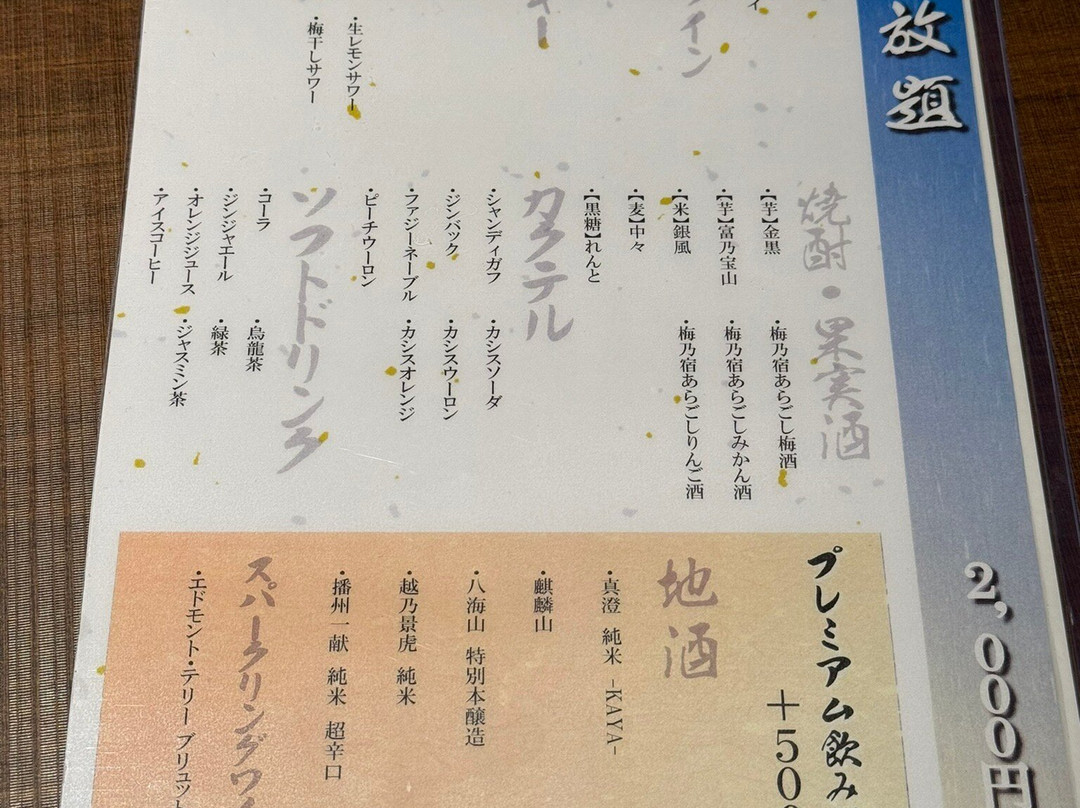 放題
2,000円
イン
ー
・生レモンサワー
・梅干しサワー
焼酎・果実酒
・【芋】金黒
・【芋】富乃宝山
・【米】銀風
・【麦】中々
・【黒糖】れんと
・梅乃宿あらごし梅酒
・梅乃宿あらごしみかん酒
・梅乃宿あらごしりんご酒
カクテル
・シャンディガフ
・ジンバック
・ファジーネーブル
・ピーチウーロン
・カシスソーダ
・カシスウーロン
・カシスオレンジ
ソフトドリンク
・コーラ
・ジンジャエール
・オレンジジュース
・アイスコーヒー
・烏龍茶
・緑茶
・ジャスミン茶
プレミアム飲み
+50
地酒
・真澄 純米 -KAYA-
・麒麟山
・八海山 特別本醸造
・越乃景虎 純米
・播州一献 純米 超辛口
スパークリングワイ
・エドモント・テリー ブリュット